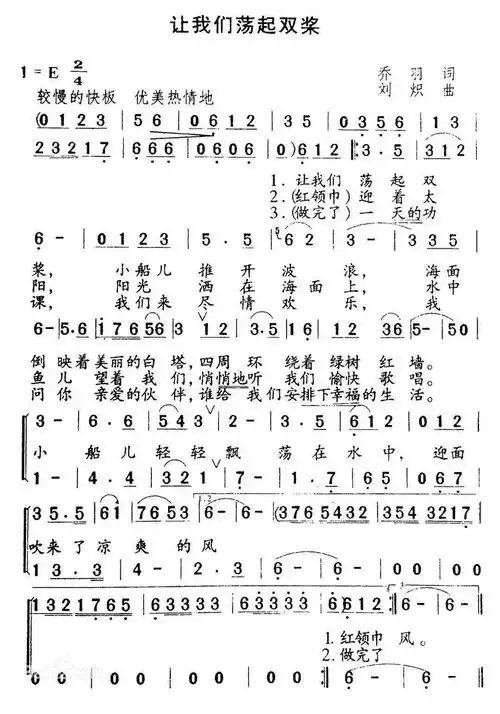 让我们荡起双桨
1=E 2/4
乔羽词
刘炽曲
较慢的快板 优美热情地
(0123 | 56 | 0612 | 35 | 0356 | 13 |
23217 | 66 | 0606 | 0)612 |: 3·5 | 312 |
1.让我们荡起双
2.(红领巾)迎着太
3.(做完了)一天的功
6- | 0123 | 5·5 | 62 | 3- | 0323 |
桨, 小船儿推开波浪, 海面
阳, 阳光洒在海面上, 水中
课, 我们来尽情欢乐, 我
6·5·6 | 17656 | 3 | 12 | 3·5 | 16·1 | 12 | 36 | 5- | 50 |
倒映着美丽的白塔,四周环绕着绿树红墙。
鱼儿望着我们,悄悄地听我们愉快歌唱。
问你亲爱的伙伴,谁给我们安排下幸福的生活。
3- | 6·6 | 543 | 3·3 | 2·3 | 12 | 6- | 0612 |
小船儿轻轻飘荡在水中,迎面
1- | 4·4 | 321 | 1·1 | 7·1 | 67 | 6- | 067 |
35·5 | 61 | 7653 | 6- | 6- | (3765432 | 3543217 |
吹来了凉爽的风
13·3 | 6- | 6- | 00 | 00 |
1321765 | 6- | 03332 | 06665 | 03333 | 6612 :| 6- | 6- |
1.红领巾 风。
2.做完了
00 | 00 | 00 | 00 | 00 | 00 :| 6- | 6- |